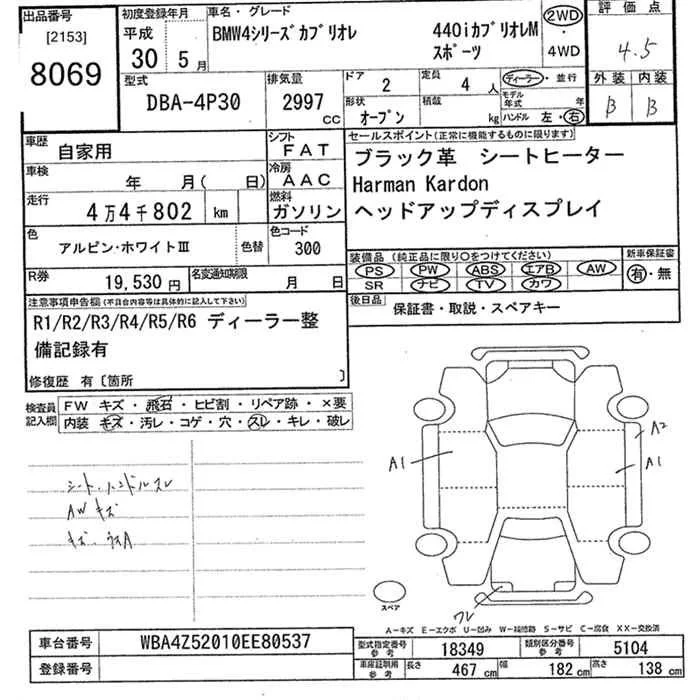 出品番号
[2153]
8069
初度登録年月
平成
30 5月
車名・グレード
BMW4シリーズカブリオレ 440iカブリオレM
スポーツ
2WD
・
4WD
評価点
4.5
外装 内装
B B
型式
DBA-4P30
排気量
2997 CC
ドア 2
定員 4 人
ディーラー・並行
モデル年式 年
形状 オープン
積載 kg
ハンドル 左・右
車歴 自家用
シフト FAT
車検 年 月( 日)
冷房 AAC
走行 4万4千802 km
燃料 ガソリン
色 アルピン・ホワイトⅢ 色替
色コード 300
R券 19,530円
名変通知期限 月 日
セールスポイント(正常に機能するものに限ります)
ブラック革 シートヒーター
Harman Kardon
ヘッドアップディスプレイ
装備品 (純正品に限り○をつけてください)
PS PW ABS エアB AW
SR ナビ TV カワ
新車保証書
有・無
後日品 保証書・取説・スペアキー
注意事項申告欄(不具合内容等は具体的に記入して下さい)
R1/R2/R3/R4/R5/R6 ディーラー整
備記録有
修復歴 有〔箇所 〕
検査員記入欄
FW キズ・飛石・ヒビ割・リペア跡・×要
内装 キズ・汚レ・コゲ・穴・スレ・キレ・破レ
シート、ハンドルスレ
AWキズ
キズ、
A1
A2
A1
ワレ
スペア
A-キズ E-エクボ U-凹み W-補修跡 S-サビ C-腐食 XX-交換済
車台番号 WBA4Z52010EE80537
登録番号
型式指定番号参考 18349
類別区分番号参考 5104
車庫証明用参考 長さ 467 cm 幅 182 cm 高さ 138 cm